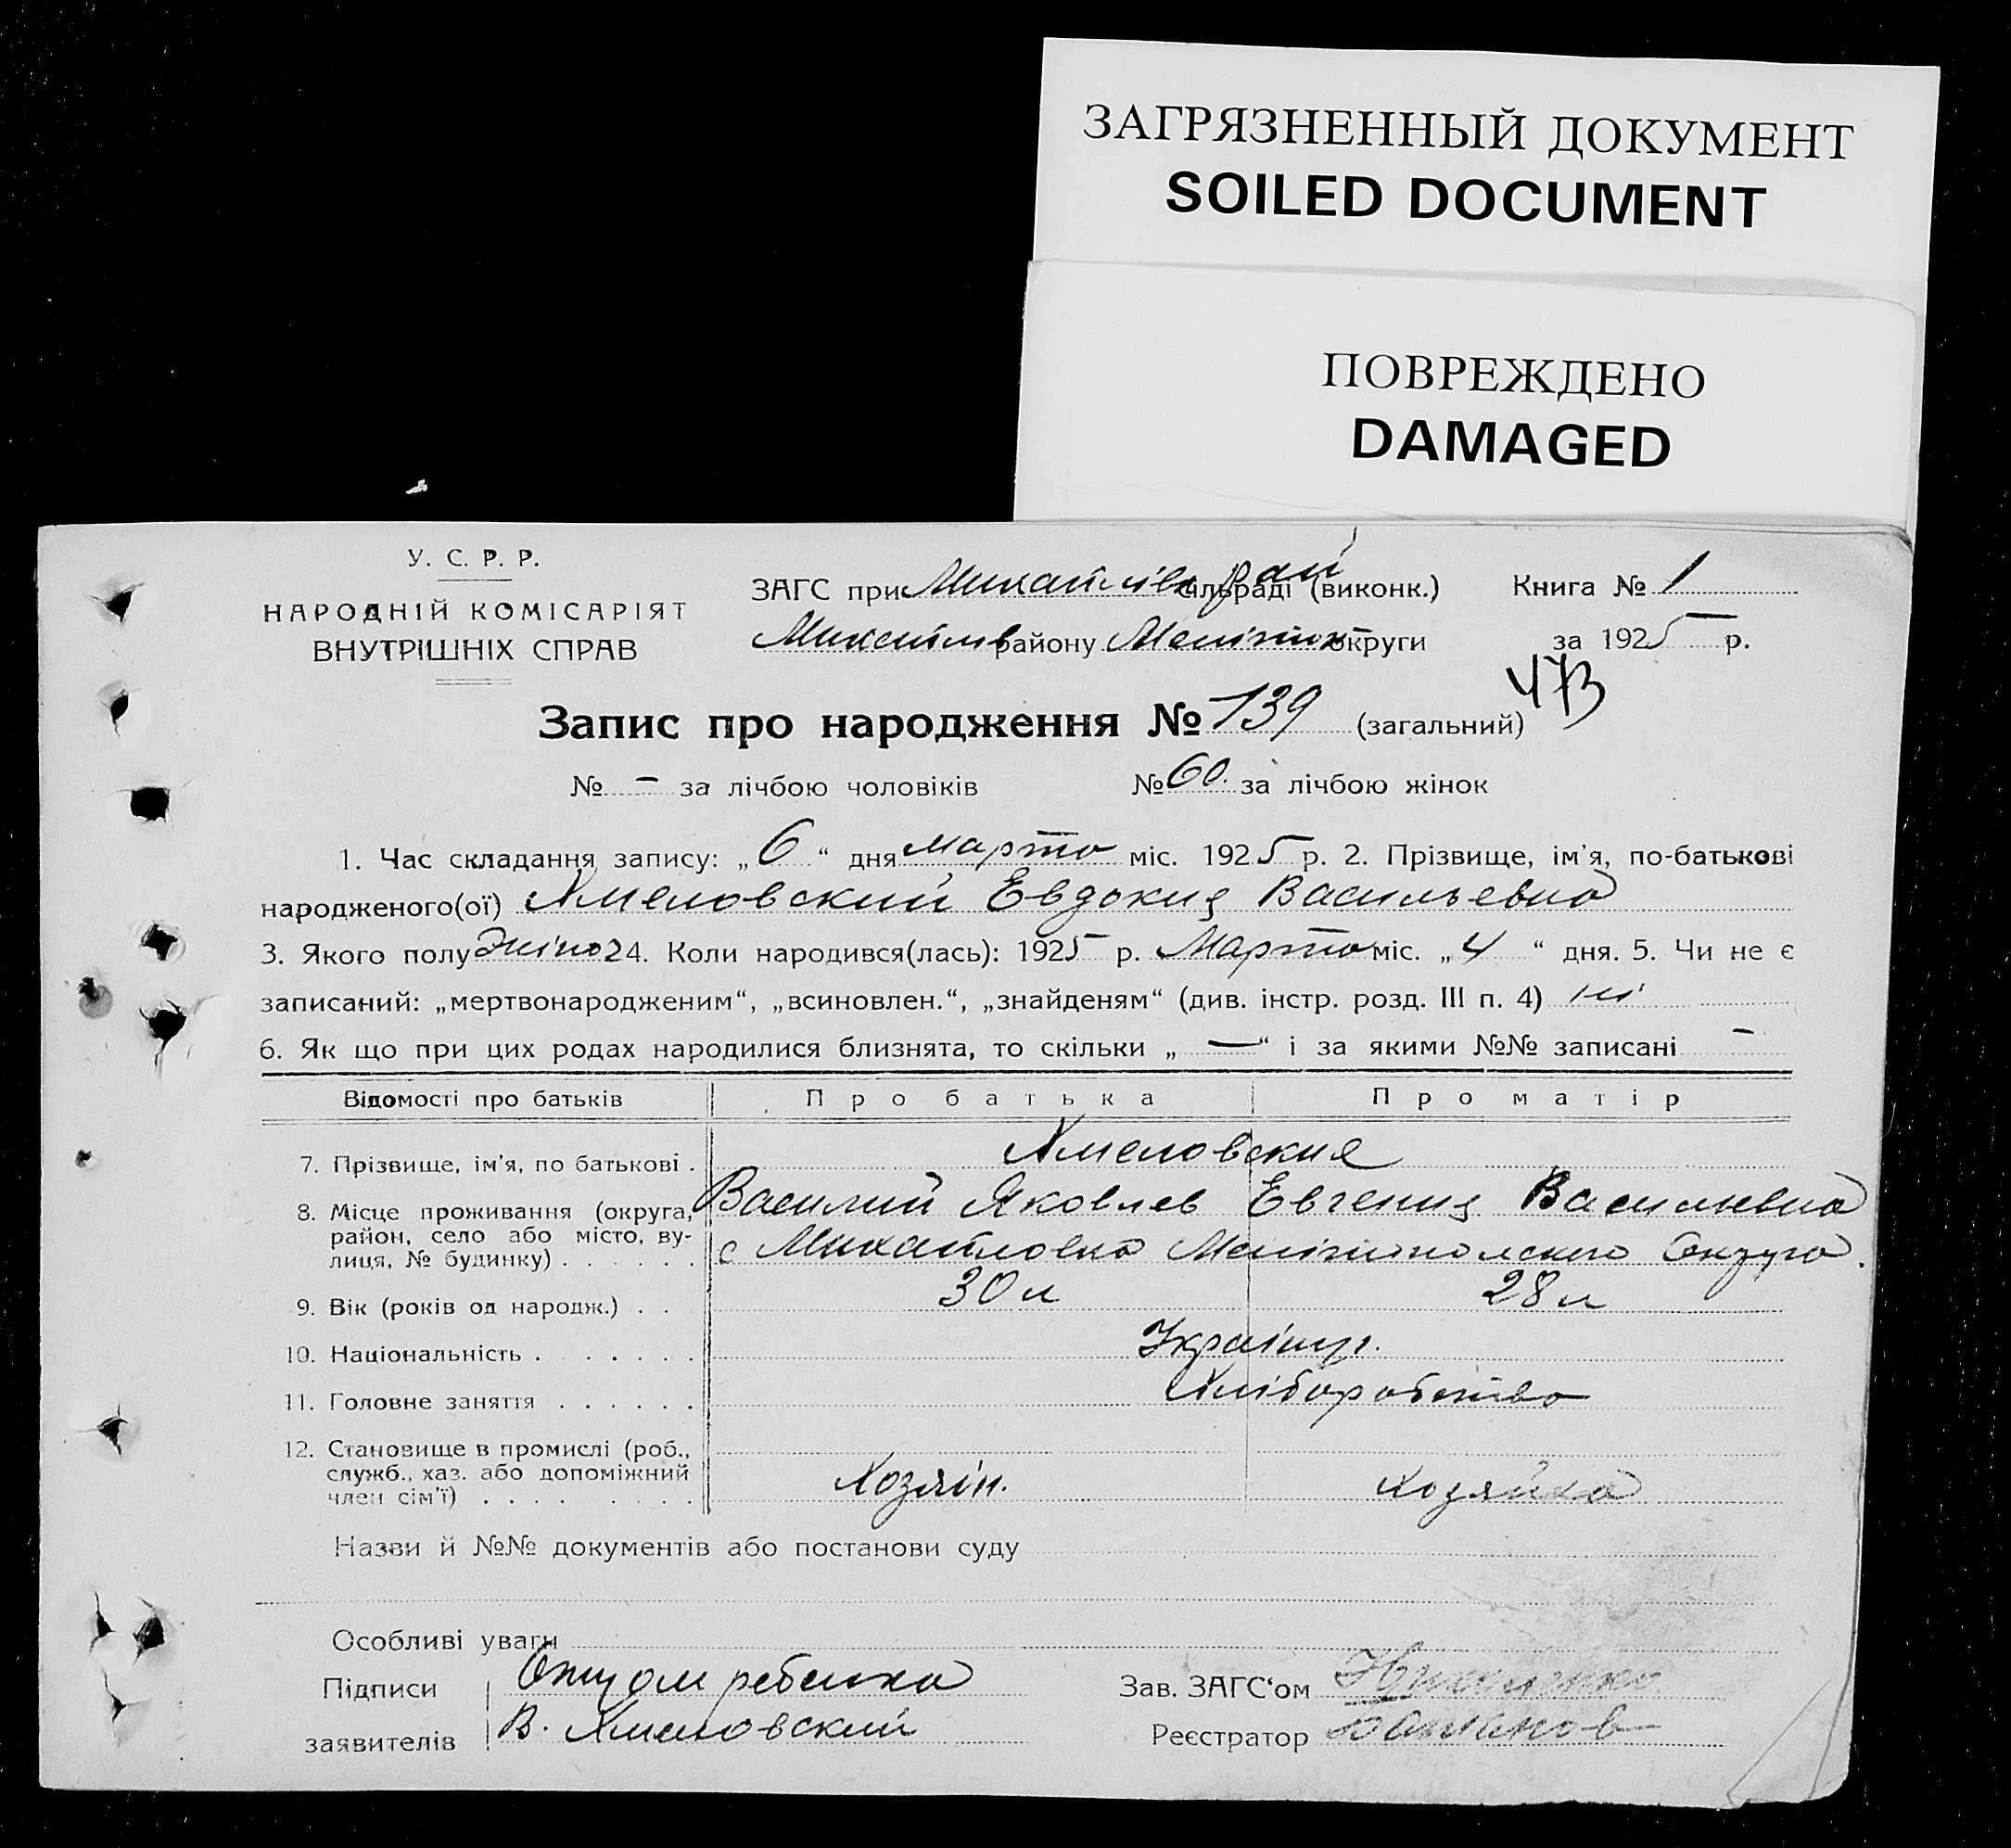 ЗАГРЯЗНЕННЫЙ ДОКУМЕНТ
SOILED DOCUMENT
ПОВРЕЖДЕНО
DAMAGED
У. С. Р. Р.
НАРОДНІЙ КОМІСАРІЯТ
ВНУТРІШНІХ СПРАВ
ЗАГС при Михайлів рай сільраді (виконк.) Книга № 1
Михайлів району Мелітоп округи за 1925 р.
473
Запис про народження № 139 (загальний)
№ – за лічбою чоловіків № 60. за лічбою жінок
1. Час складання запису: „ 6 “ дня марта міс. 1925 р. 2. Прізвище, ім'я, по-батькові
народженого(ої) Хмеловский Евдокия Васильевна
3. Якого полу жіноч 4. Коли народився(лась): 1925 р. Марта міс. „ 4 “ дня. 5. Чи не є
записаний: „мертвонародженим“, „всиновлен.“, „знайденям“ (див. інстр. розд. III п. 4) ні
6. Як що при цих родах народилися близнята, то скільки „ — “ і за якими №№ записані –
Відомості про батьків Про батька Про матір
7. Прізвище, ім'я, по батькові . Хмеловские
8. Місце проживання (округа, Василий Яковлев Евгения Васильевна
район, село або місто, ву-
лиця, № будинку) . . . . . . с Михайловка Мелітопольского Округа.
9. Вік (років од народж.) . . 30 л 28 л
10. Національність . . . . . . . Українц.
11. Головне заняття . . . . . . Хліборобство
12. Становище в промислі (роб.,
служб., хаз. або допоміжний
член сім'ї) . . . . . . . . Хозяін. хозяйка
Назви й №№ документів або постанови суду
Особливі уваги
Підписи Отцом ребенка Зав. ЗАГС‘ом
заявителів В. Хмеловский Реєстратор